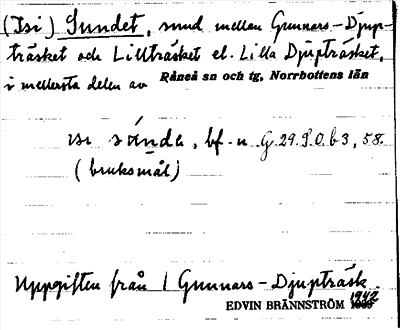 (Isi) Sundet, sund mellan Gunnars-Djup-
träsket och Lillträsket el. Lilla Djupträsket,
i mellersta delen av Råneå sn och tg, Norrbottens län
isi sɨ́nda, bf. n. G.29.S.O.b3, 58.
(bruksmål)
Uppgiften från 1 Gunnars-Djupträsk.
EDVIN BRÄNNSTRÖM 1942